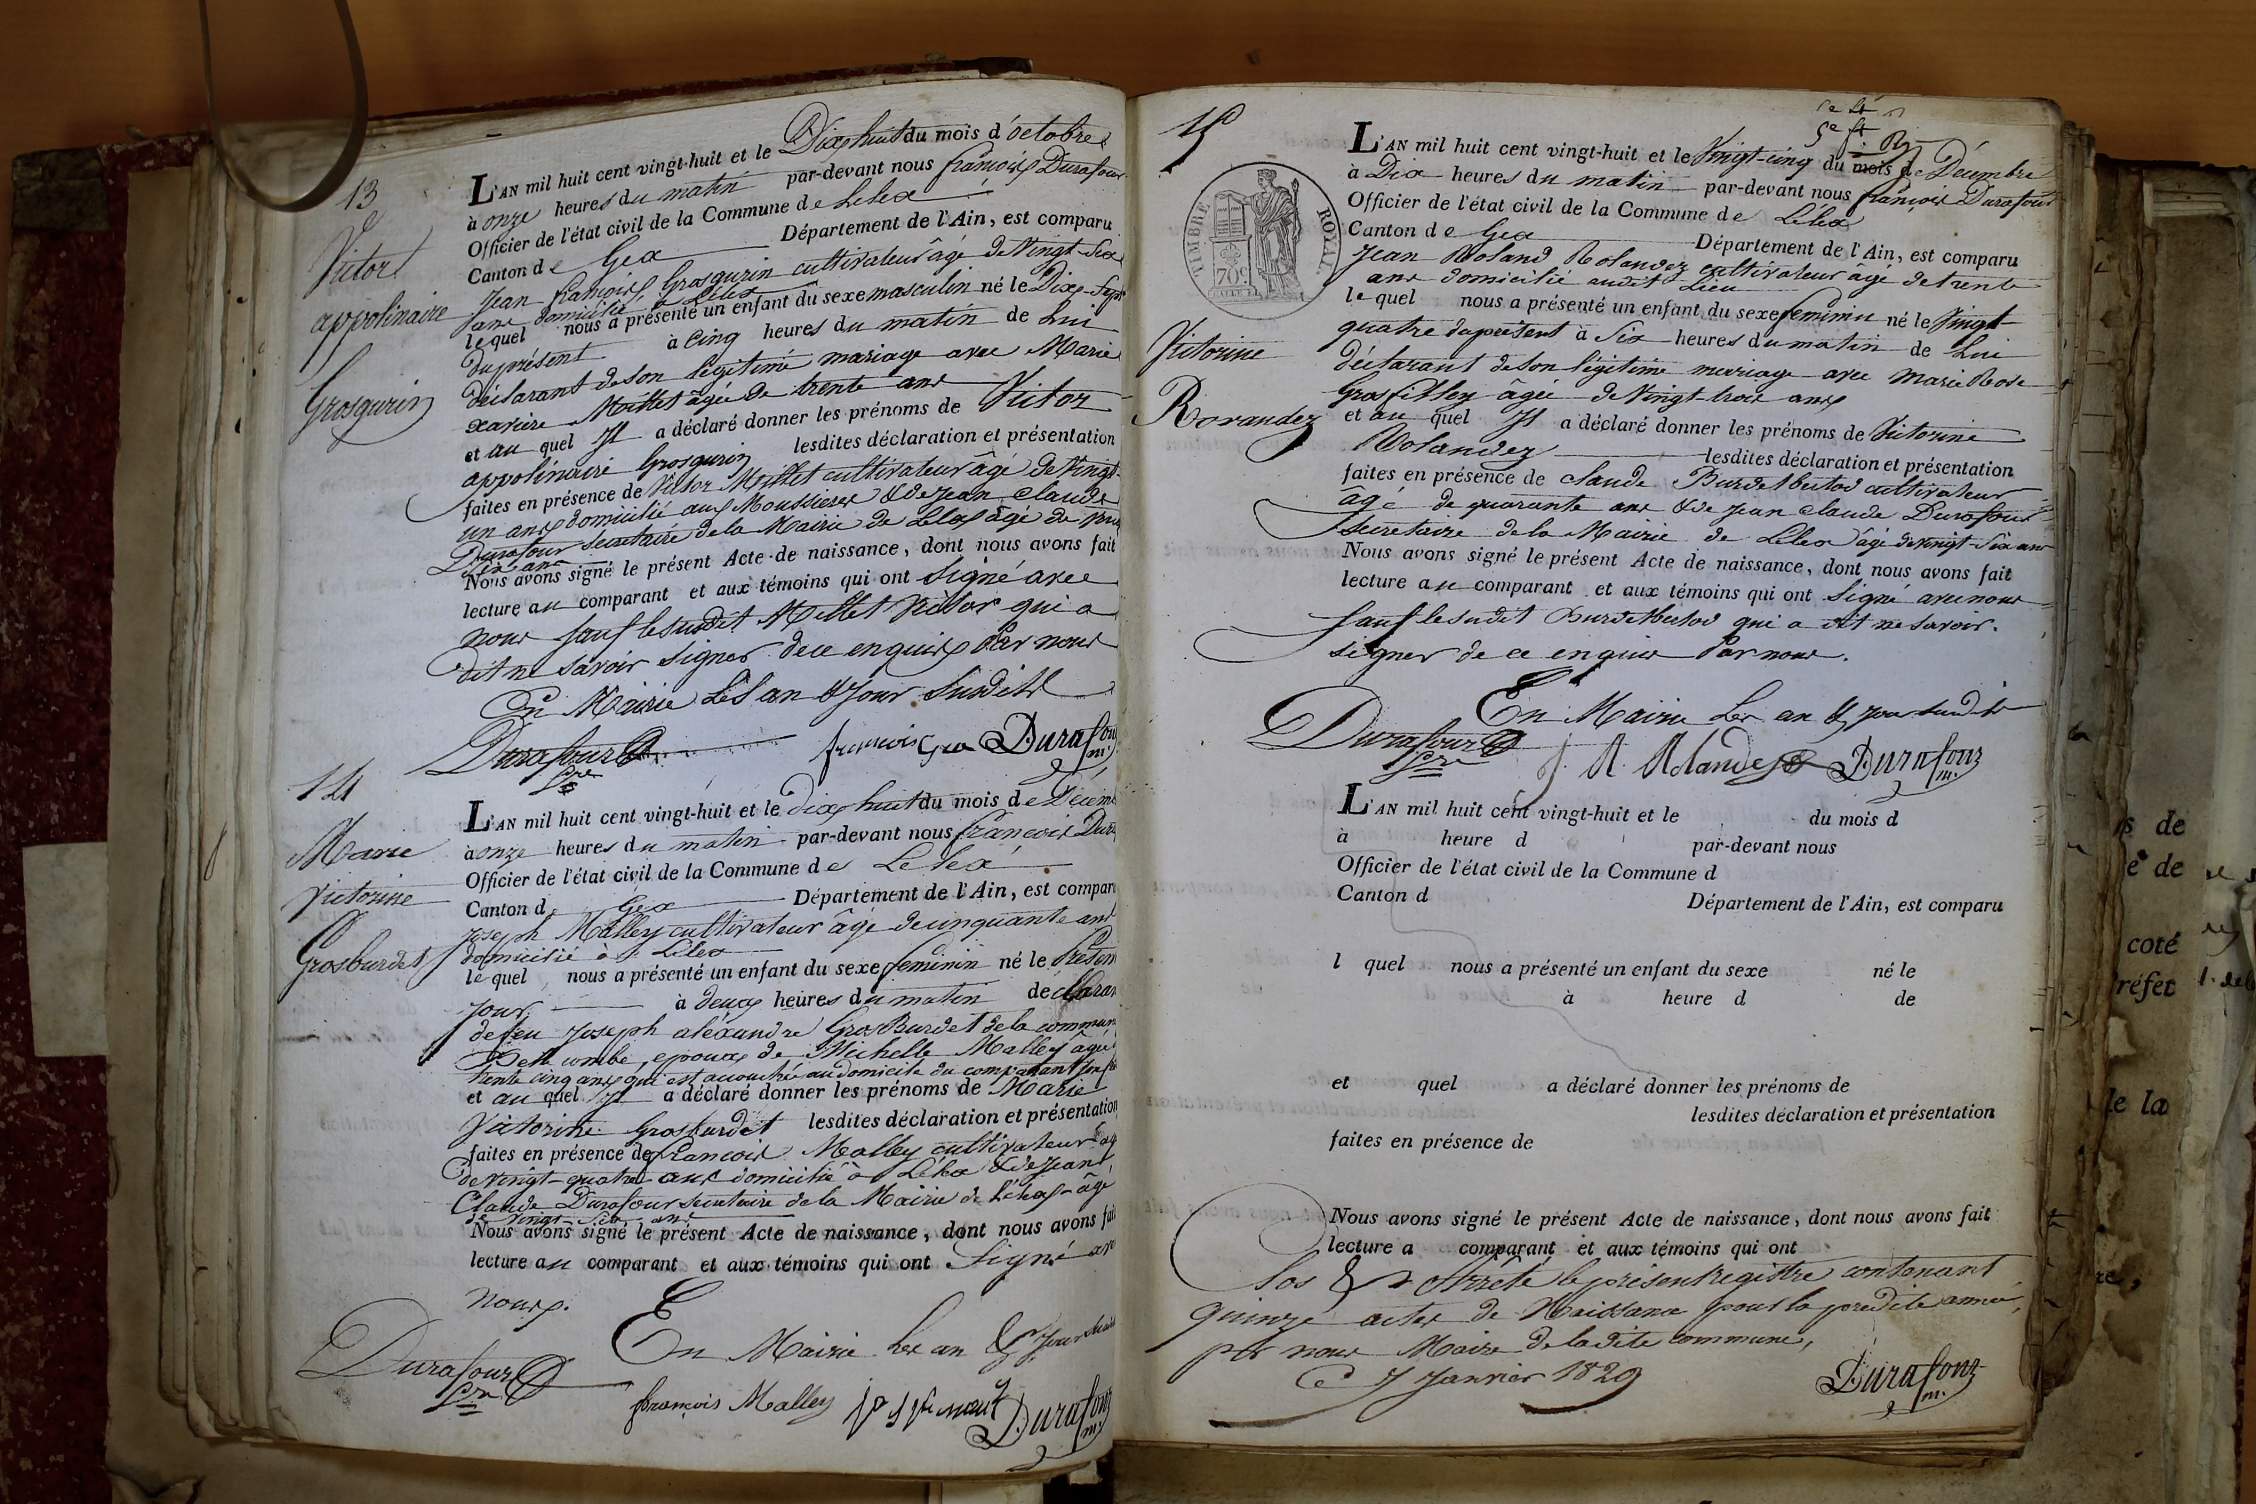 13
Victor
appolinaire
Grosgurin
L'AN mil huit cent vingt-huit et le Dix huit du mois d'octobre
à onze heures du matin par-devant nous françois Durafour
Officier de l'état civil de la Commune de Lelex
Canton de Gex Département de l'Ain, est comparu
Jean françois Grosgurin cultivateur âgé de Vingt-Six
ans domicilié à Lélex
lequel nous a présenté un enfant du sexe masculin né le Dix-Sept
du présent à Cinq heures du matin de Lui
déclarant de son légitime mariage avec Marie
xavière Millet âgée de trente ans
et au quel Il a déclaré donner les prénoms de Victor
appolinaire Grosgurin lesdites déclaration et présentation
faites en présence de Victor Millet cultivateur âgé de Vingt-
un ans domicilié aux Moussieres & de Jean Claude
Durafour secretaire de la Mairie de Lelex âgé de Vingt
Six ans
Nous avons signé le présent Acte de naissance, dont nous avons fait
lecture au comparant et aux témoins qui ont Signé avec
nous sauf le susdit Millet Victor qui a
dit ne savoir signer de ce enquis Par nous
En Mairie Les an & Jour Susdits
Durafour françois Gro Durafour
Sre m.
14
Marie
Victorine
Grosburdet
L'AN mil huit cent vingt-huit et le dix huit du mois de Décem
à onze heures du matin par-devant nous françois Dura
Officier de l'état civil de la Commune de Lelex
Canton de Gex Département de l'Ain, est comparu
Joseph Malley cultivateur âgé de cinquante ans
domicilié à Lélex
lequel nous a présenté un enfant du sexe feminin né le Présen
Jour à deux heures du matin déclaran
de feu Joseph aléxandre GrosBurdet de la commun
Belle combe, epoux de Michelle Malley âgé
trente cinq ans qui est accouchée au domicile du comparant
et au quel Il a déclaré donner les prénoms de Marie
Victorine Grosburdet lesdites déclaration et présentation
faites en présence de francois Malley cultivateur ag
de vingt-quatre ans domicilié à Lélex & de Jean
Claude Durafour secretaire de la Mairie de Lélex âgé
de Vingt-Six ans
Nous avons signé le présent Acte de naissance, dont nous avons fait
lecture au comparant et aux témoins qui ont Signé avec
nous.
En Mairie Les an & Jour
Durafour
Sre
françois Malley Durafour
m.
15
TIMBRE ROYAL
70c.
Victorine
Rorandez
L'AN mil huit cent vingt-huit et le Vingt-cinq du mois de Décembre
à Dix heures du matin par-devant nous françois Durafour
Officier de l'état civil de la Commune de Lélex
Canton de Gex Département de l'Ain, est comparu
Jean Roland Rolandez cultivateur âgé de trente
ans domicilié audit Lieu
lequel nous a présenté un enfant du sexe feminin né le Vingt-
quatre du présent à Six heures du matin de Lui
déclarant de son légitime mariage avec Marie Rose
Grosfilley âgée de Vingt-trois ans
et au quel Il a déclaré donner les prénoms de Victorine
Rolandez lesdites déclaration et présentation
faites en présence de claude Burdetbertod cultivateur
âgé de quarante ans & de Jean Claude Durafour
secretaire de la Mairie de Lelex âgé de vingt-Six ans
Nous avons signé le présent Acte de naissance, dont nous avons fait
lecture au comparant et aux témoins qui ont Signé avec nous
sauf le sudit Burdetbertod qui a dit ne savoir.
signer de ce enquis Par nous.
En Mairie Les an & jour susdits
Durafour J. R. Rolandez Durafour
Sre m.
L'AN mil huit cent vingt-huit et le du mois d
à heure d par-devant nous
Officier de l'état civil de la Commune d
Canton d Département de l'Ain, est comparu
l quel nous a présenté un enfant du sexe né le
à heure d de
et quel a déclaré donner les prénoms de
lesdites déclaration et présentation
faites en présence de
Nous avons signé le présent Acte de naissance, dont nous avons fait
lecture a comparant et aux témoins qui ont
Clos & arrêté le présent registre contenant
quinze actes de Naissance pour la predite année,
par nous Maire de la dite commune,
Ce 7 Janvier 1829
Durafour
m.
de
de
coté
Préfet
de la